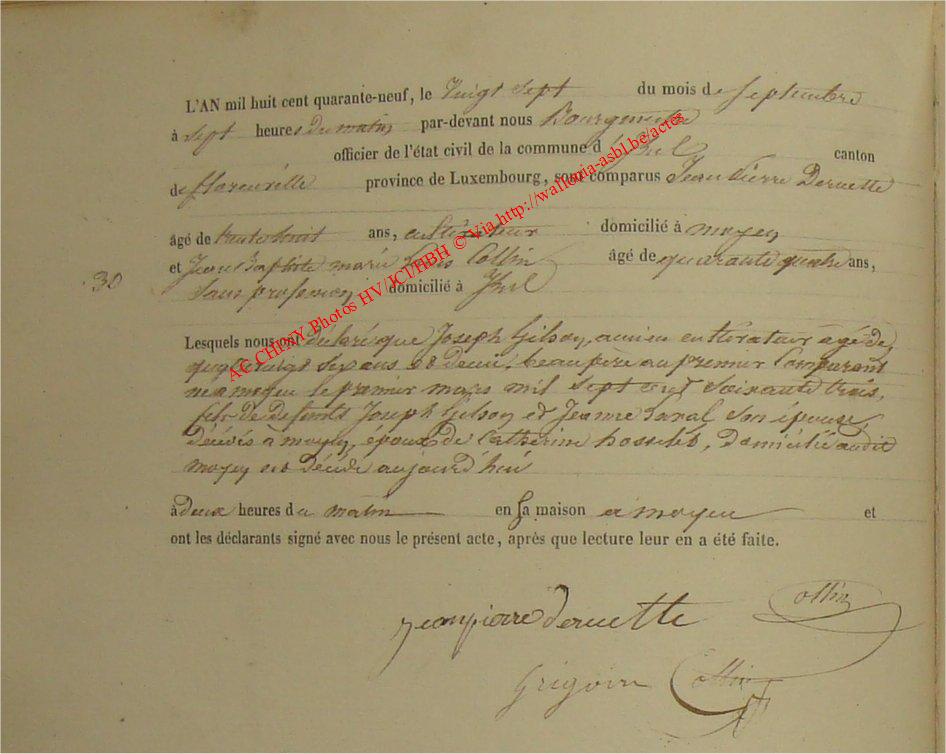 L'AN mil huit cent quarante-neuf, le Vingt sept du mois de Septembre
à Sept heures du matin par-devant nous Bourgmestre
officier de l'état civil de la commune d'Izel canton
de florenville province de Luxembourg, sont comparus Jean Pierre Deruette
âgé de trente huit ans, cultivateur domicilié à moyen
et Jean Baptiste marie Louis Collin âgé de quarante quatre ans,
30
Sans profession domicilié à Izel
Lesquels nous ont déclaré que Joseph Gilson, ancien cultivateur âgé de
quatre vingt six ans et demi, beau père au premier Comparant
né a moyen le premier mars mil sept cent soixante trois,
fils de défunts Joseph Gilson et Jeanne son épouse,
décédés à moyen, époux de Catherine hosselet, Domicilié audit
moyen est décédé aujourd'hui
à deux heures du matin en Sa maison a moyen et
ont les déclarants signé avec nous le présent acte, après que lecture leur en a été faite.
jeanpierre deruette Collin
Grégoire Collin
AC CHINY Photos HV/JCT/HBH © Via http://wallonia-asbl.be/actes